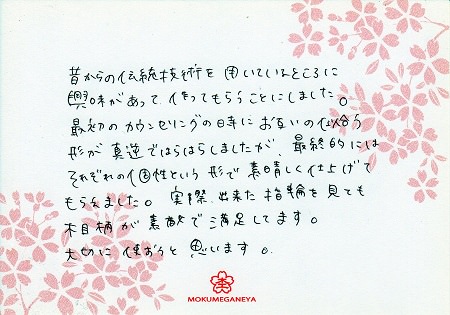 昔からの伝統技術を用いているところに
興味があって、作ってもらうことにしました。
最初のカウンセリングの時にお互いの似合う
形が真逆ではらはらしましたが、最終的には
それぞれの個性という形で素晴しく仕上げて
もらえました。実際、出来た指輪を見ても
木目柄が素敵で満足してます。
大切に使おうと思います。
MOKUMEGANEYA